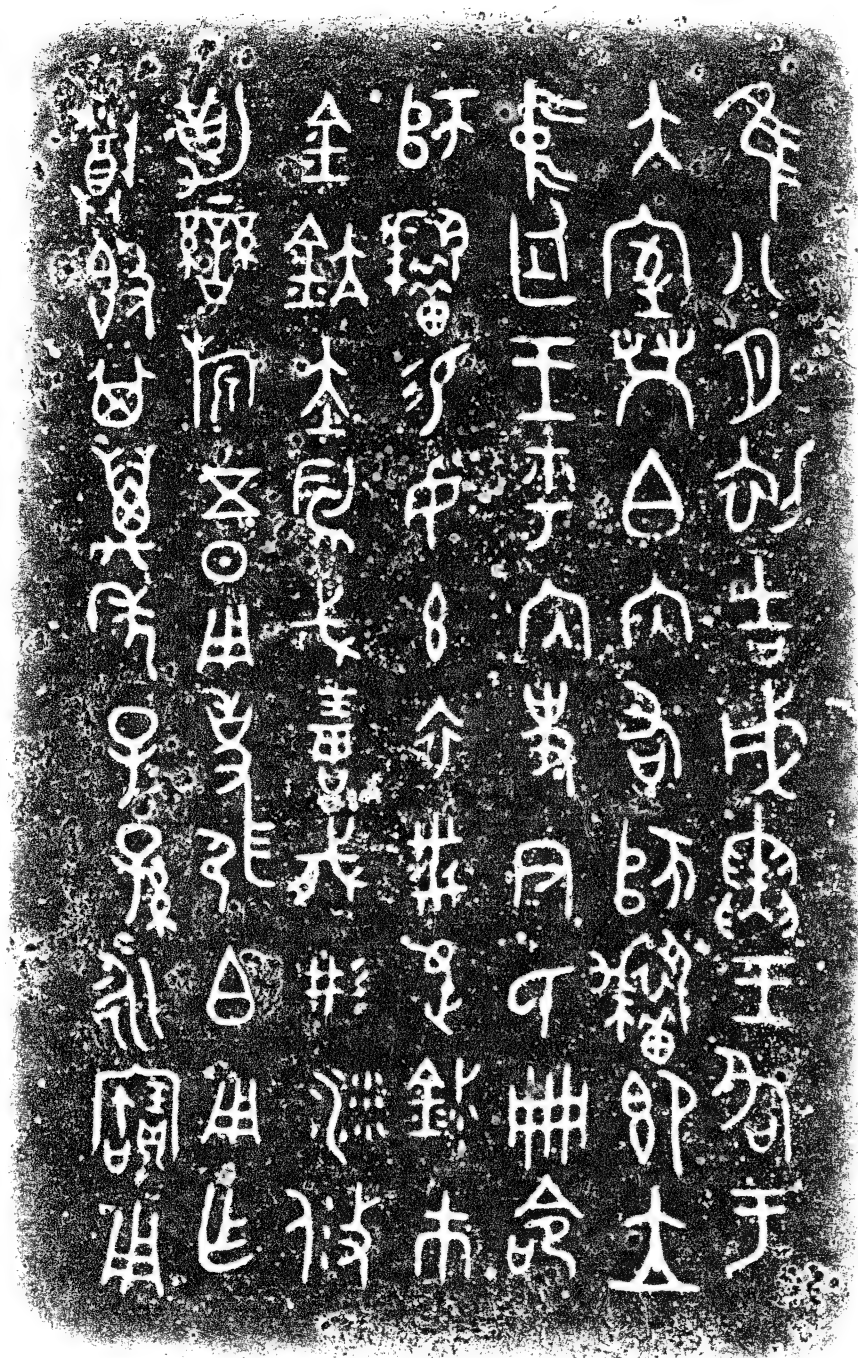 隹八月初吉戊寅王各于
大室𤇾白內右師耤即立
中廷王乎內史尹氏冊命
師耤易女玄衣黹屯巿
金鈧赤舄戈琱胾彤沙攸
勒䜌旂五日用事弭白用乍
尊𣪘其萬年子孫永寶用